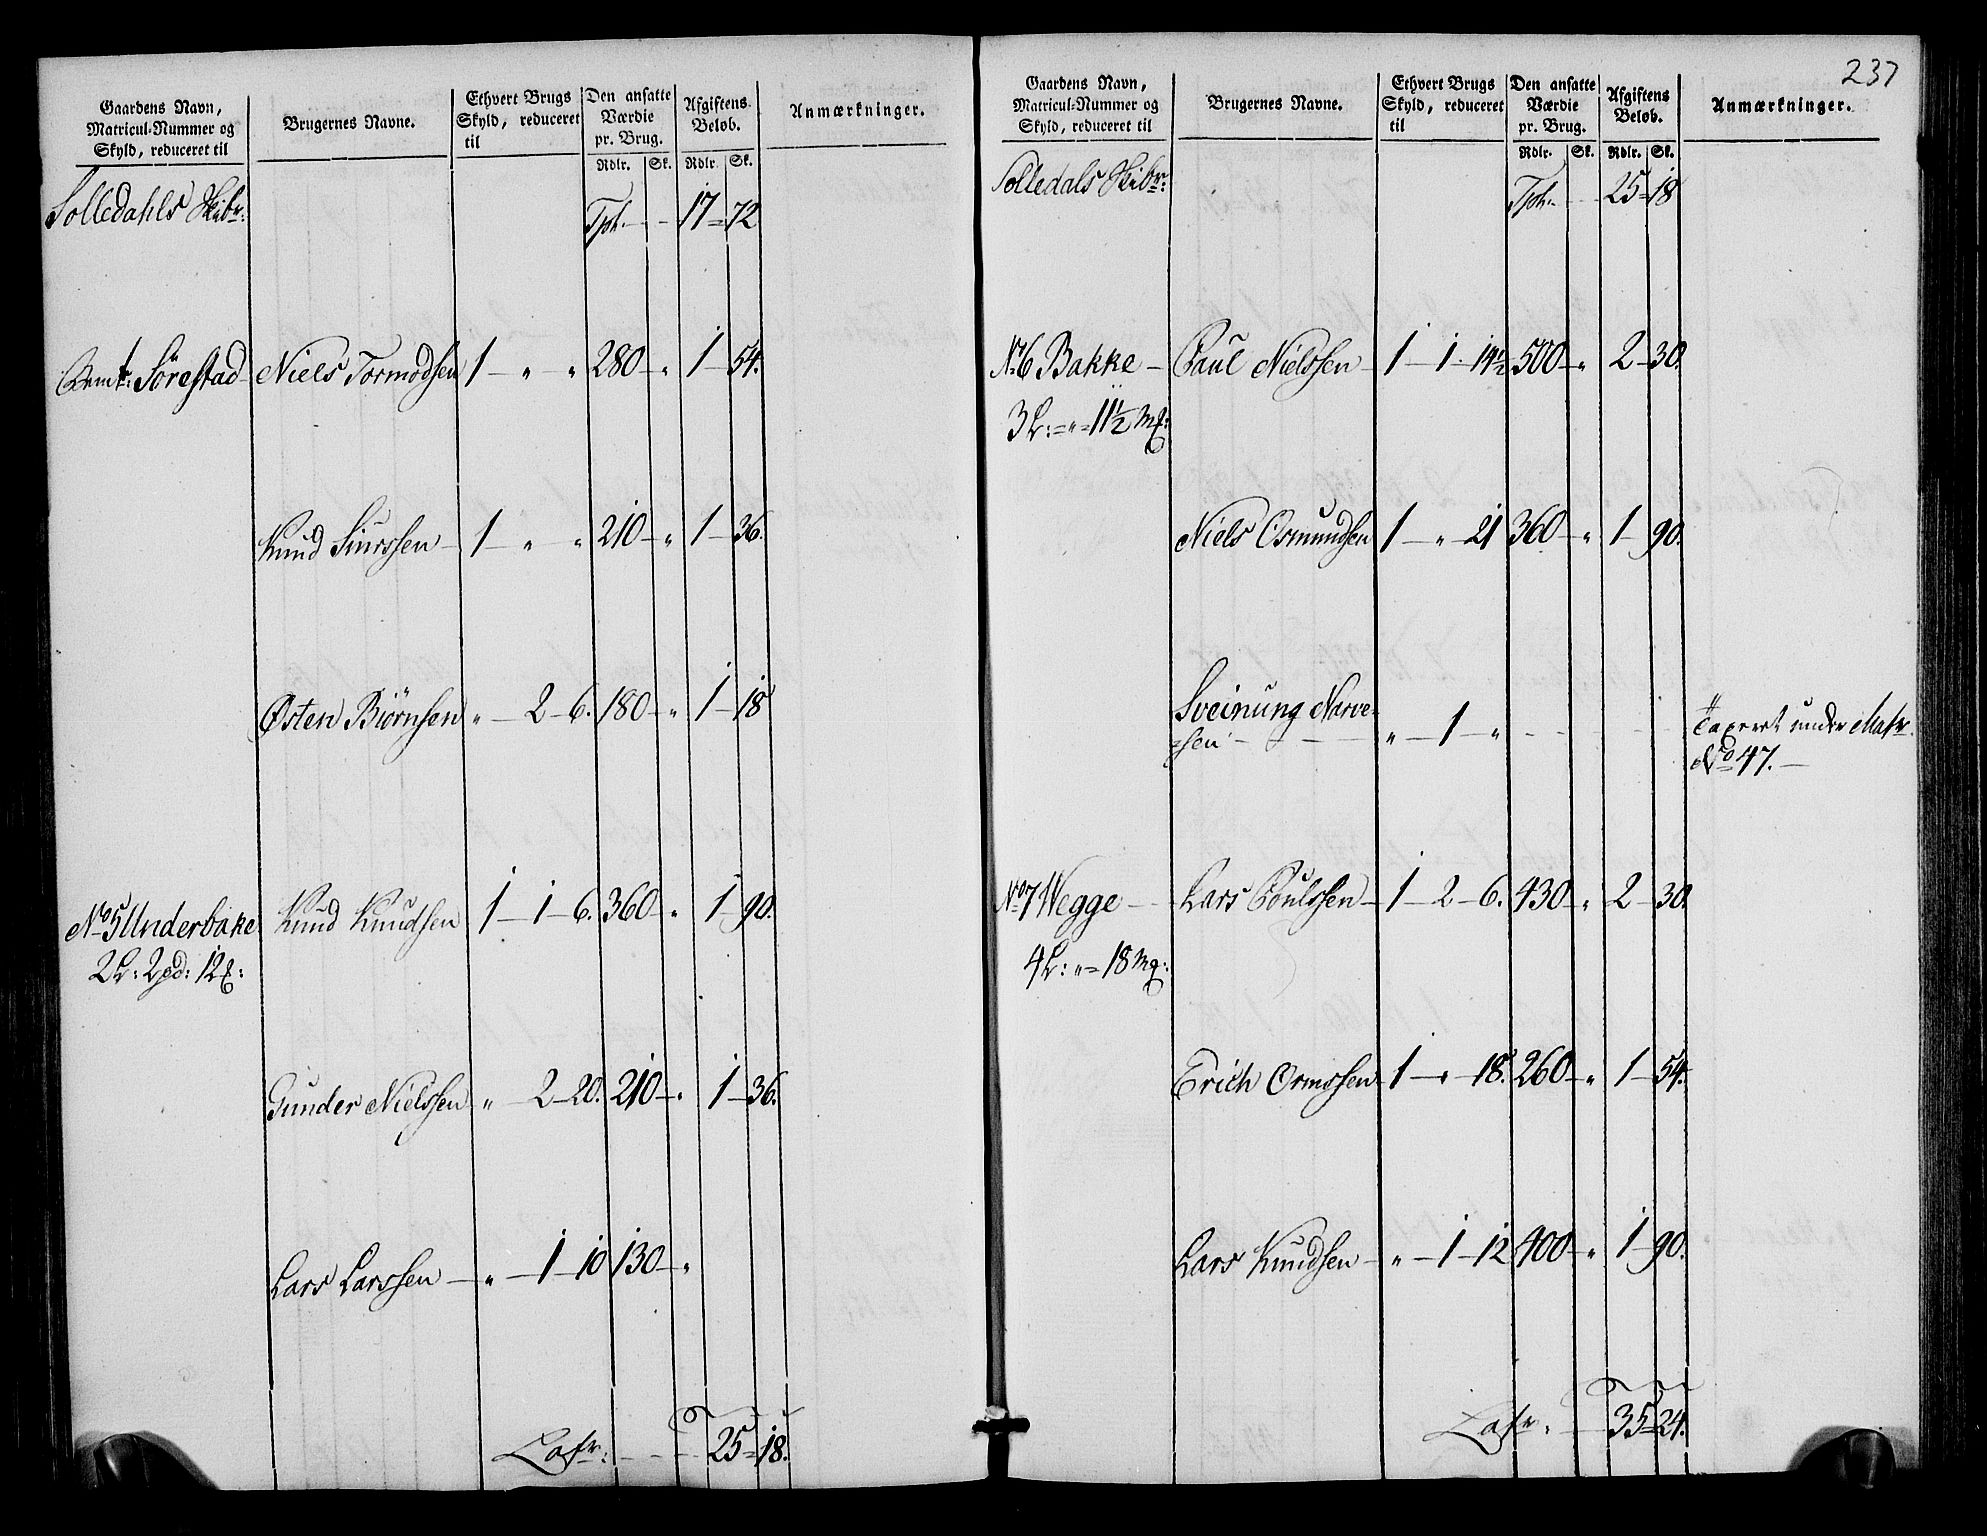 Gaardens Navn, Matricul-Nummer og Skyld, reduceret til
Brugernes Navne.
Ethvert Brugs Skyld, reduceret til
Den ansatte Værdie pr. Brug.
Afgiftens Beløb.
Anmærkninger.
Rdlr. Sk. Rdlr. Sk.
Solledahls Skibr: Tph. - - 17 = 72
Sørestad Niels Tormodsen 1 — " " 280 — " 1 — 54.
Knud Siurssen — 1 — " " 210 — " 1 — 36.
Østen Biørnsen " — 2 — 6. 180 — " 1 — 18
No 5 Underbake Knud Knudsen 1 — 1 — 6. 360 — " 1 — 90.
2 L: 2 pd: 12 :
Gunder Nielssen " — 2 — 20. 210 — " 1 — 36.
Lars Larssen — " — 1 — 10 130 — "
Lafr: - - - 25 = 18.
237
Gaardens Navn, Matricul-Nummer og Skyld, reduceret til
Brugernes Navne.
Ethvert Brugs Skyld, reduceret til
Den ansatte Værdie pr. Brug.
Afgiftens Beløb.
Anmærkninger.
Rdlr. Sk. Rdlr. Sk.
Solledals Skibr: Tph. - - - 25 = 18
No 6 Bakke — Paul Nielssen — 1 — 1 — 14½ 500 — " 2 — 30.
3 L: = " = 11½ Mk:
Niels Osmundsen 1 — " — 21 360 — " 1 — 90.
Sveinung Narve-
sen — — — " — 1 — " - - - - Taxeret under Matr.
No 47. —
No 7 Wegge — Lars Poulssen — 1 — 2 — 6. 430 — " 2 — 30.
4 L: " = 18 Mk:
Erich Ormssen 1 — " — 18. 260 — " 1 — 54.
Lars Knudsen — " — 1 — 12 400 — " 1 — 90.
Lafr. - - 35 = 24.